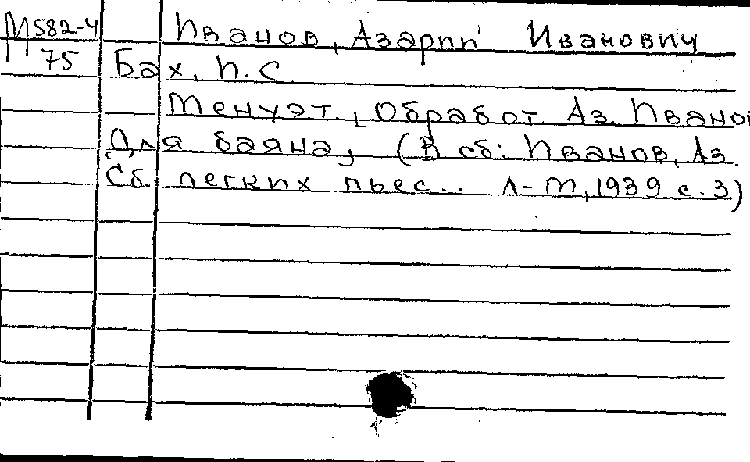 М582-4 Иванов, Азарий Иванович
75 Бах, И.С.
Менуэт, Обработ Аз. Иванов
Для баяна, (В сб: Иванов, Аз.
Сб. легких пьес.. Л-М, 1939 с. 3)